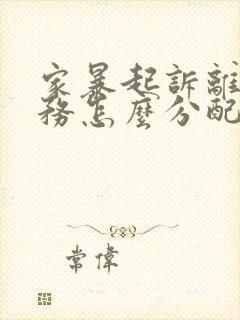 家暴起訴離
務怎麼分配
常偉